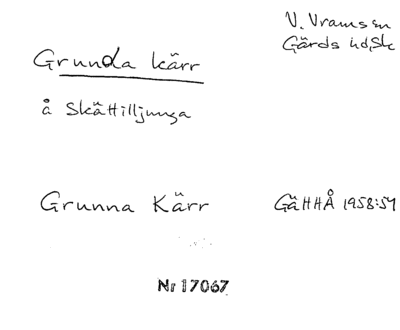 V. Vram sn
Gärds hd, Sk
Grunda kärr
å Skättilljunga
Grunna Kärr
GäHHÅ 1958:54
Nr 17067